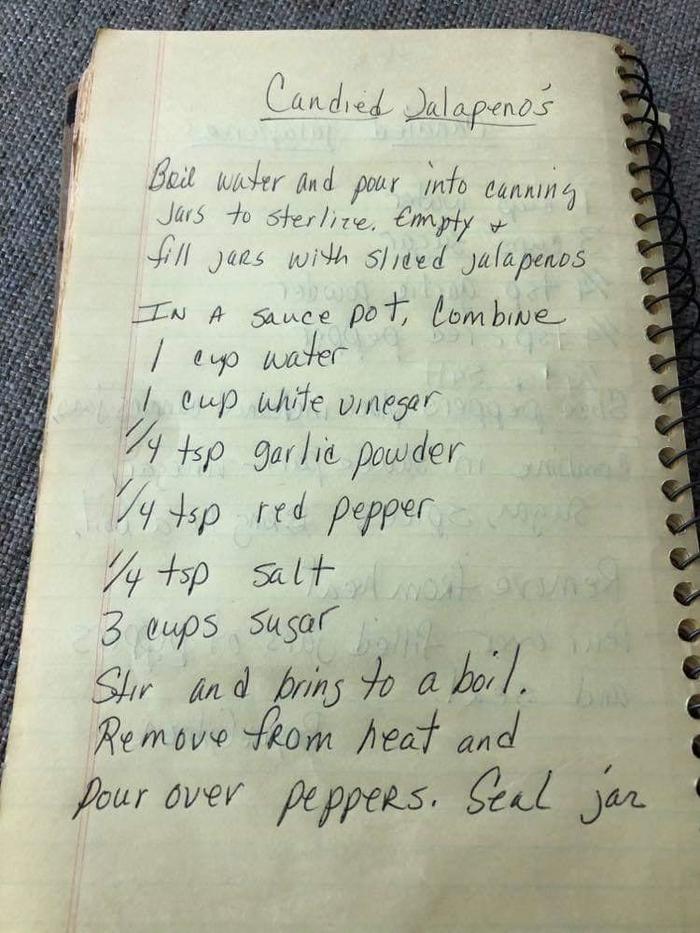 Candied Jalapeno's
Boil water and pour into canning
jars to sterlize. Empty &
fill jars with sliced jalapenos
In a sauce pot, Combine
1 cup water
1 cup white vinegar
1/4 tsp garlic powder
1/4 tsp red pepper
1/4 tsp salt
3 cups sugar
Stir and bring to a boil.
Remove from heat and
pour over peppers. Seal jar